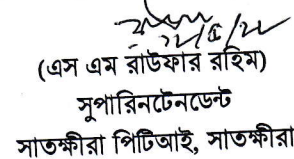 ২২/৫/২২
(এস এম রাউফার রহিম)
সুপারিনটেনডেন্ট
সাতক্ষীরা পিটিআই, সাতক্ষীরা